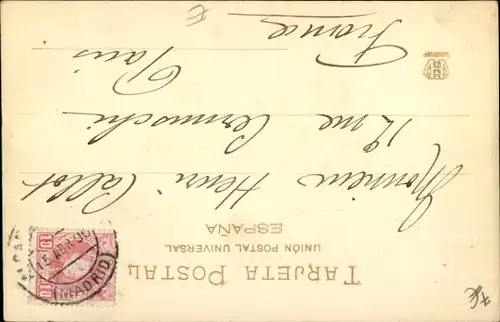 TARJETA POSTAL
UNIÓN POSTAL UNIVERSAL
ESPAÑA
Monsieur Henri Callot
12 rue Cernuschi
Paris
France
(MADRID)
10
10